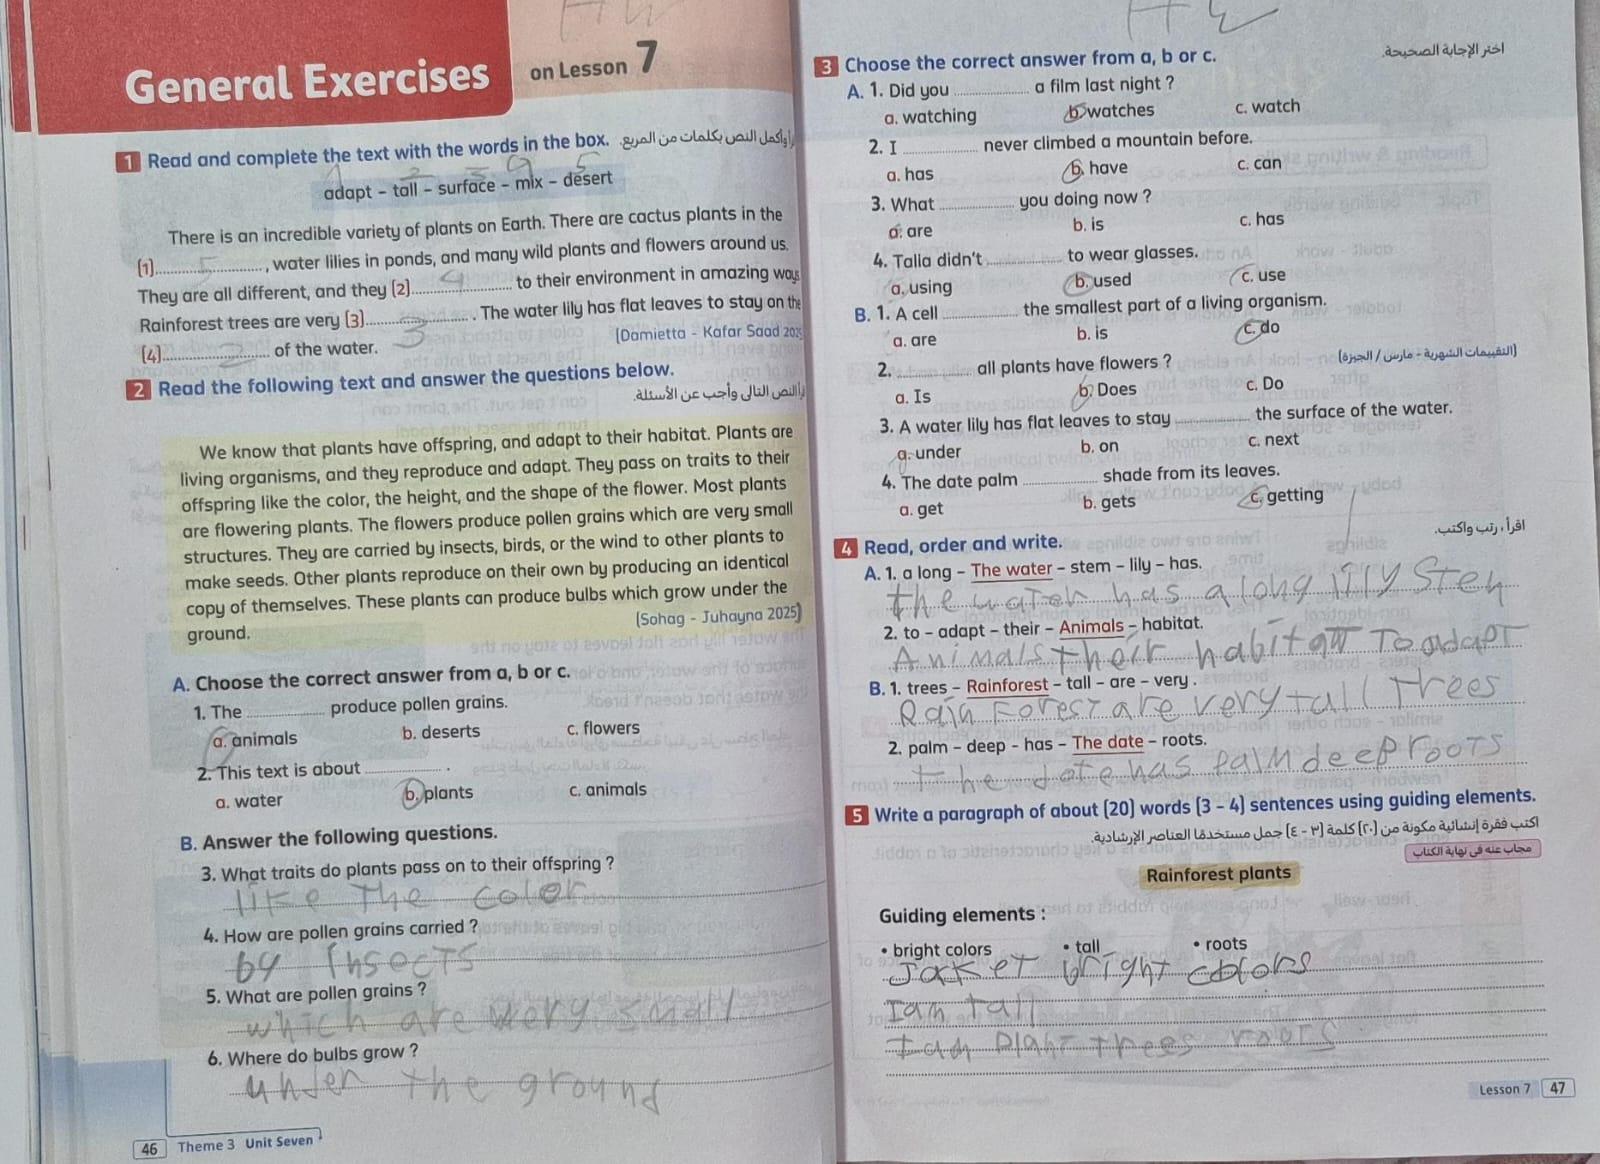 HW
General Exercises on Lesson 7
1 Read and complete the text with the words in the box. وأكمل النص بكلمات من المربع.
adapt – tall – surface – mix – desert
There is an incredible variety of plants on Earth. There are cactus plants in the
(1) 5 , water lilies in ponds, and many wild plants and flowers around us.
They are all different, and they (2) 4 to their environment in amazing ways
Rainforest trees are very (3) 3 . The water lily has flat leaves to stay on the
(4) 2 of the water. (Damietta - Kafar Saad 2025
2 Read the following text and answer the questions below.
النص التالى وأجب عن الأسئلة.
We know that plants have offspring, and adapt to their habitat. Plants are
living organisms, and they reproduce and adapt. They pass on traits to their
offspring like the color, the height, and the shape of the flower. Most plants
are flowering plants. The flowers produce pollen grains which are very small
structures. They are carried by insects, birds, or the wind to other plants to
make seeds. Other plants reproduce on their own by producing an identical
copy of themselves. These plants can produce bulbs which grow under the
ground. (Sohag - Juhayna 2025)
A. Choose the correct answer from a, b or c.
1. The ............ produce pollen grains.
a. animals b. deserts c. flowers
2. This text is about ............ .
a. water b. plants c. animals
B. Answer the following questions.
3. What traits do plants pass on to their offspring ?
like The color
4. How are pollen grains carried ?
by Insects
5. What are pollen grains ?
which are very small
6. Where do bulbs grow ?
under the ground
46 Theme 3 Unit Seven
HW
3 Choose the correct answer from a, b or c. اختر الإجابة الصحيحة.
A. 1. Did you ............ a film last night ?
a. watching b. watches c. watch
2. I ............ never climbed a mountain before.
a. has b. have c. can
3. What ............ you doing now ?
a. are b. is c. has
4. Talia didn't ............ to wear glasses.
a. using b. used c. use
B. 1. A cell ............ the smallest part of a living organism.
a. are b. is c. do
2. ............ all plants have flowers ? (التقييمات الشهرية - مارس / الجيزة)
a. Is b. Does c. Do
3. A water lily has flat leaves to stay ............ the surface of the water.
a. under b. on c. next
4. The date palm ............ shade from its leaves.
a. get b. gets c. getting
4 Read, order and write. اقرأ، رتب واكتب.
A. 1. a long – The water – stem – lily – has.
the water has a long lily Stem
2. to – adapt – their – Animals – habitat.
Animals their habitat To adapt
B. 1. trees – Rainforest – tall – are – very .
Rain Forest are very tall Trees
2. palm – deep – has – The date – roots.
the date has palm deep roots
5 Write a paragraph of about (20) words (3 – 4) sentences using guiding elements.
اكتب فقرة إنشائية مكونة من (٢٠) كلمة (٣ - ٤) جمل مستخدمًا العناصر الإرشادية.
مجاب عنه فى نهاية الكتاب
Rainforest plants
Guiding elements :
• bright colors • tall • roots
Jacket bright colors
I am tall
trees roots
Lesson 7 47